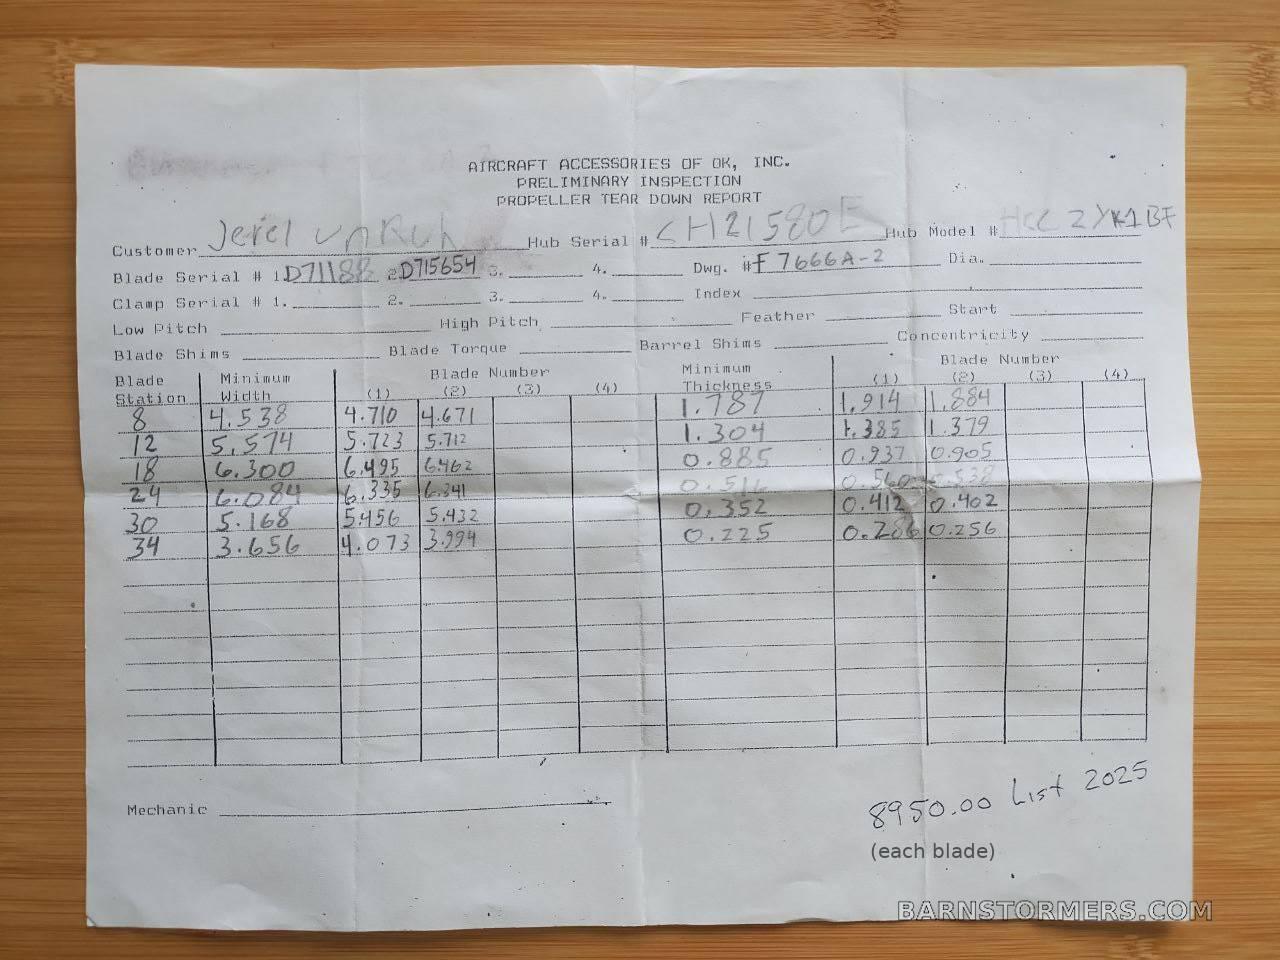 AIRCRAFT ACCESSORIES OF OK, INC.
PRELIMINARY INSPECTION
PROPELLER TEAR DOWN REPORT
Customer Jerel Hub Serial # CH21580E Hub Model # HCC2YK1BF
Blade Serial # 1. D71188 2. D715654 3. 4. Dwg. # F7666A-2 Dia.
Clamp Serial # 1. 2. 3. 4. Index
Low Pitch High Pitch Feather Start
Blade Shims Blade Torque Barrel Shims Concentricity
Blade Station Minimum Width Blade Number (1) (2) (3) (4) Minimum Thickness Blade Number (1) (2) (3) (4)
8 4.538 4.710 4.671 1.787 1.914 1.884
12 5.574 5.723 5.712 1.304 1.385 1.379
18 6.300 6.495 6.462 0.885 0.937 0.905
24 6.084 6.335 6.341 0.514 0.560 0.538
30 5.168 5.456 5.432 0.352 0.412 0.402
34 3.656 4.073 3.994 0.225 0.286 0.256
Mechanic
8950.00 List 2025
(each blade)
BARNSTORMERS.COM